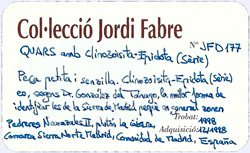 Col·lecció Jordi Fabre
QUARS amb Clinozoisita-Epidota (Sèrie)
Nº JFD177
Peça petita i senzilla. Clinozoisita-Epidota (sèrie)
es, segons Dr. González del Tánago, la millor forma de
identificar les de la Sierra de Madrid, ja que en general zonen
Trobat: 1998
Pedreres Navazales II, Lozoya
Adquisició: 12/1998
Comarca Sierra Norte Madrid, Comunidad de Madrid, España